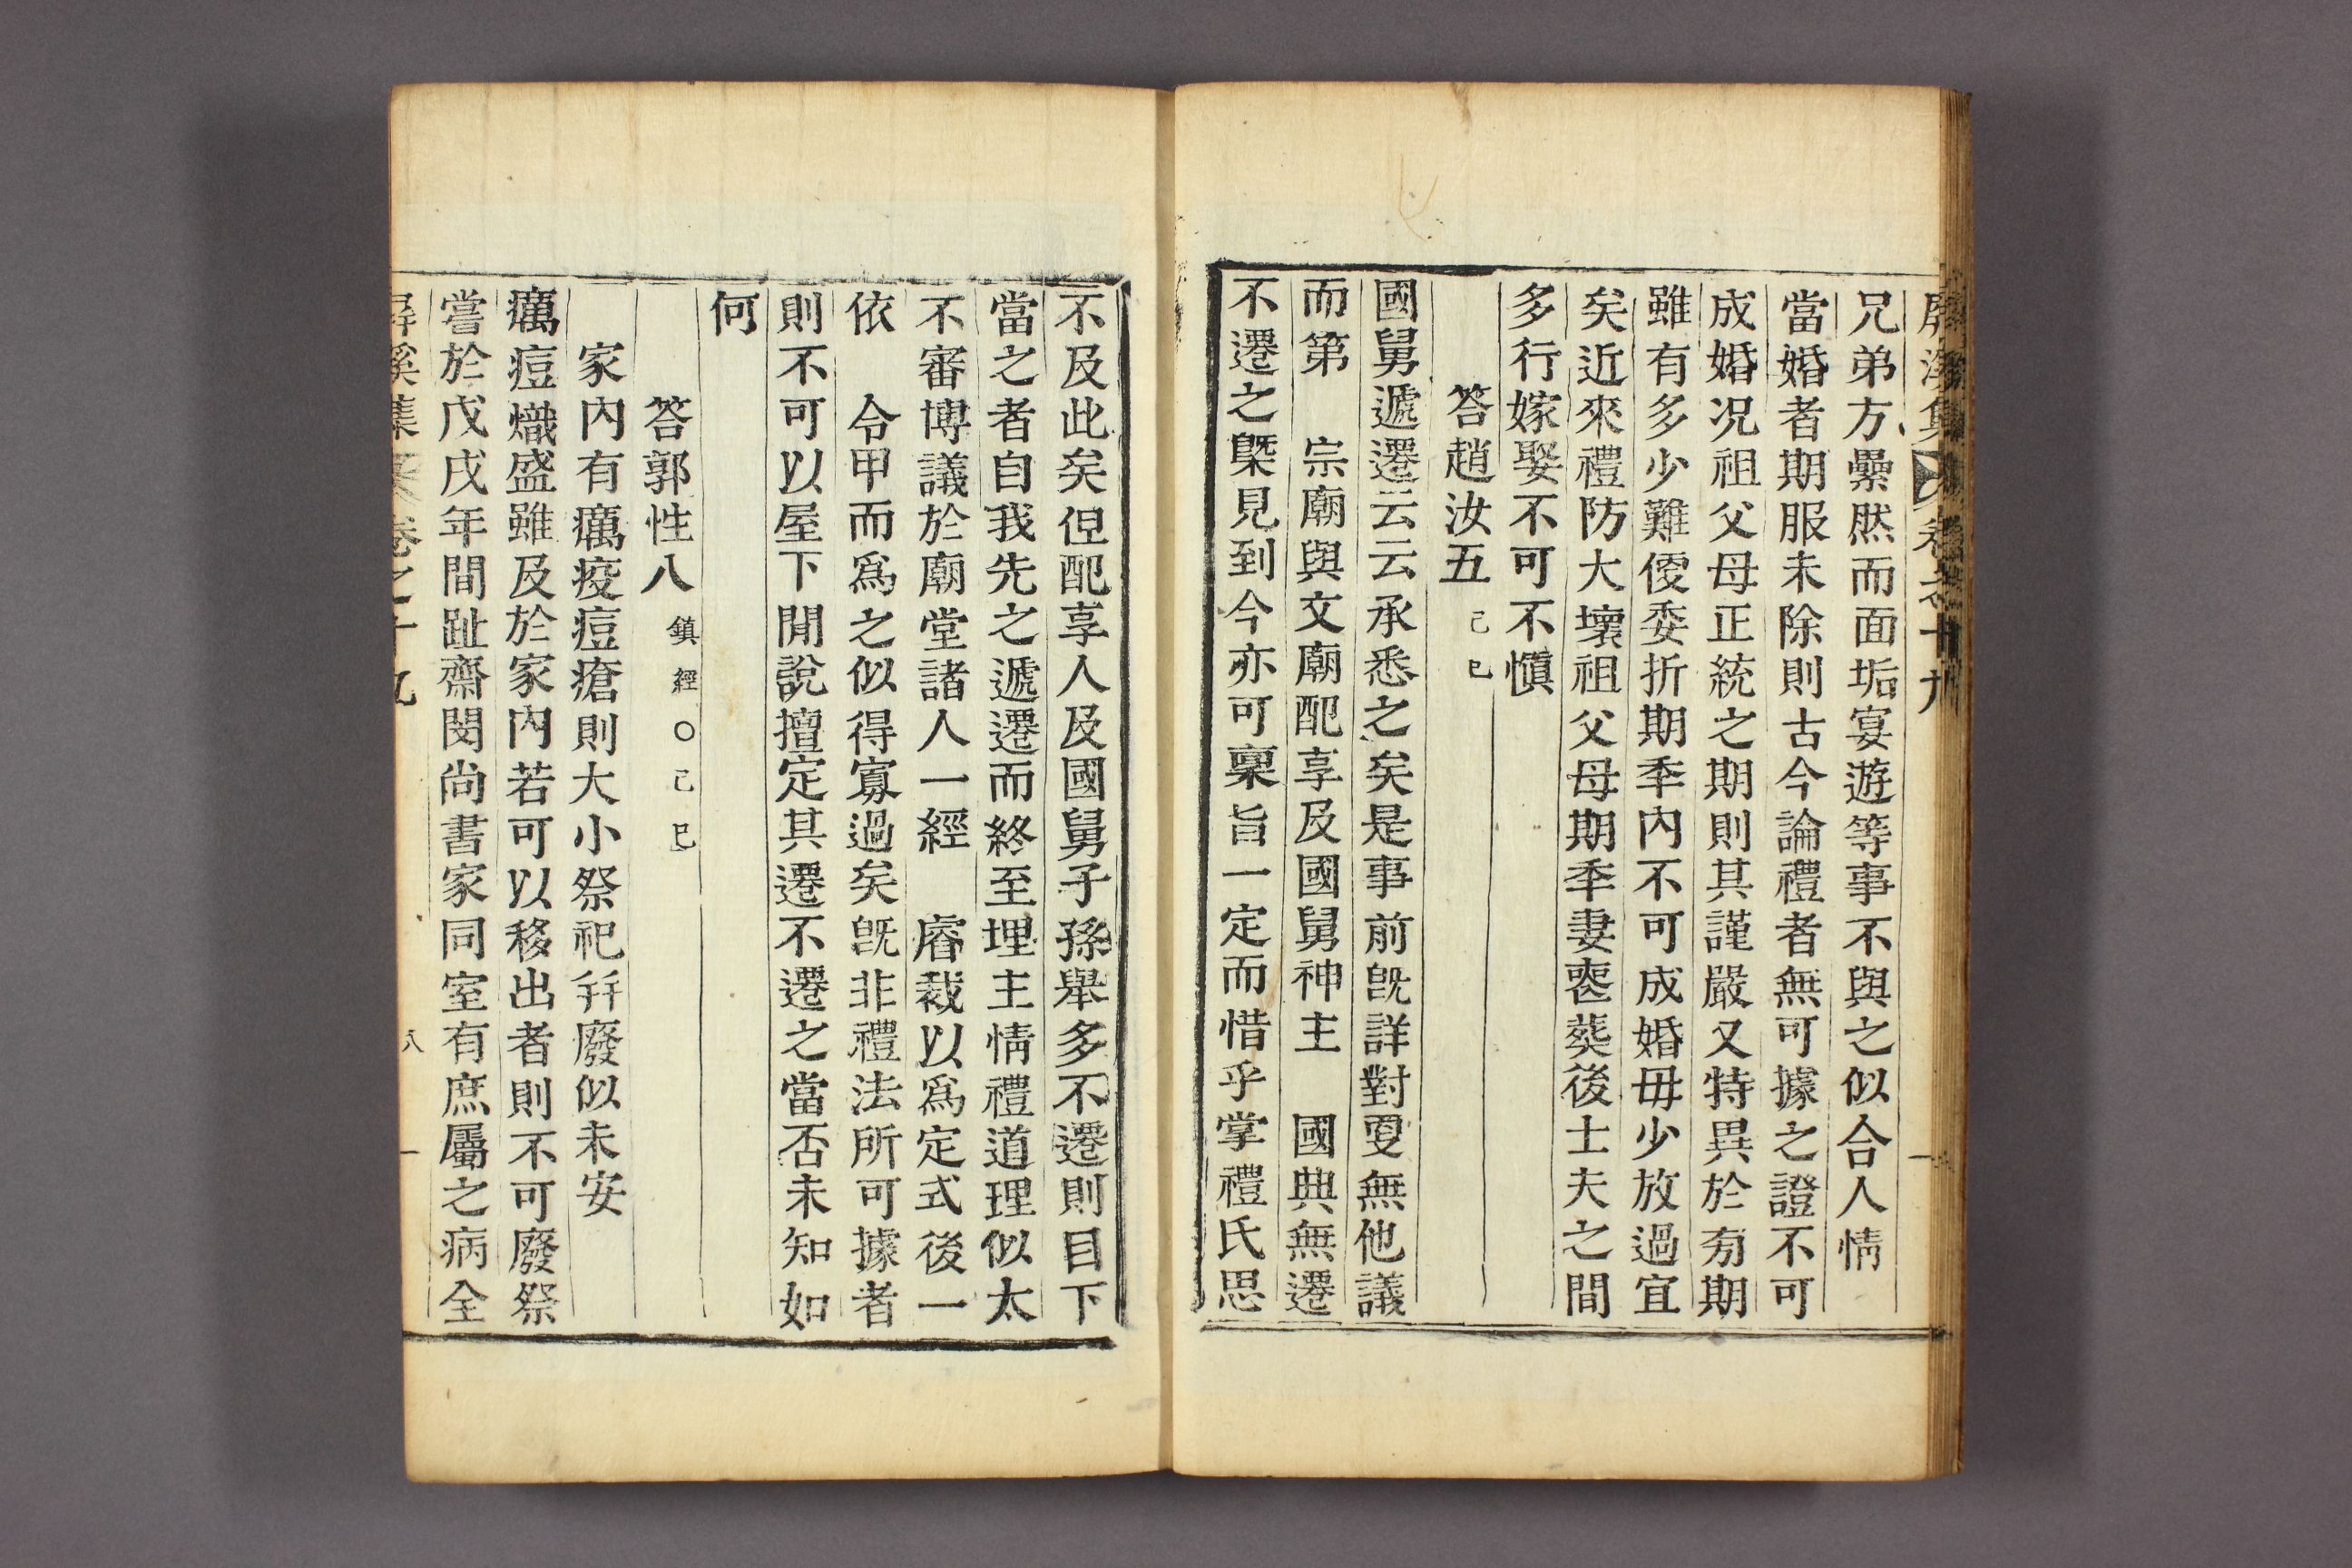 屛溪集 卷之十九
兄弟方纍然而面垢宴遊等事不與之似合人情
當婚者期服未除則古今論禮者無可據之證不可
成婚况祖父母正統之期則其謹嚴又特異於旁期
雖有多少難便委折期季內不可成婚毋少放過宜
矣近來禮防大壞祖父母期季妻喪葬後士夫之間
多行嫁娶不可不愼
答趙汝五 己巳
國舅遞遷云云承悉之矣是事前旣詳對更無他議
而第 宗廟與文廟配享及國舅神主 國典無遷
不遷之槩見到今亦可稟旨一定而惜乎掌禮氏思
不及此矣但配享人及國舅子孫舉多不遷則目下
當之者自我先之遞遷而終至埋主情禮道理似太
不審博議於廟堂諸人一經 睿裁以爲定式後一
依 令甲而爲之似得寡過矣旣非禮法所可據者
則不可以屋下閒說擅定其遷不遷之當否未知如
何
答郭性八 鎭經○己巳
家內有癘疫痘瘡則大小祭祀幷廢似未安
癘痘熾盛雖及於家內若可以移出者則不可廢祭
嘗於戊戌年間趾齋閔尙書家同室有庶屬之病全
屛溪集 卷之十九 八